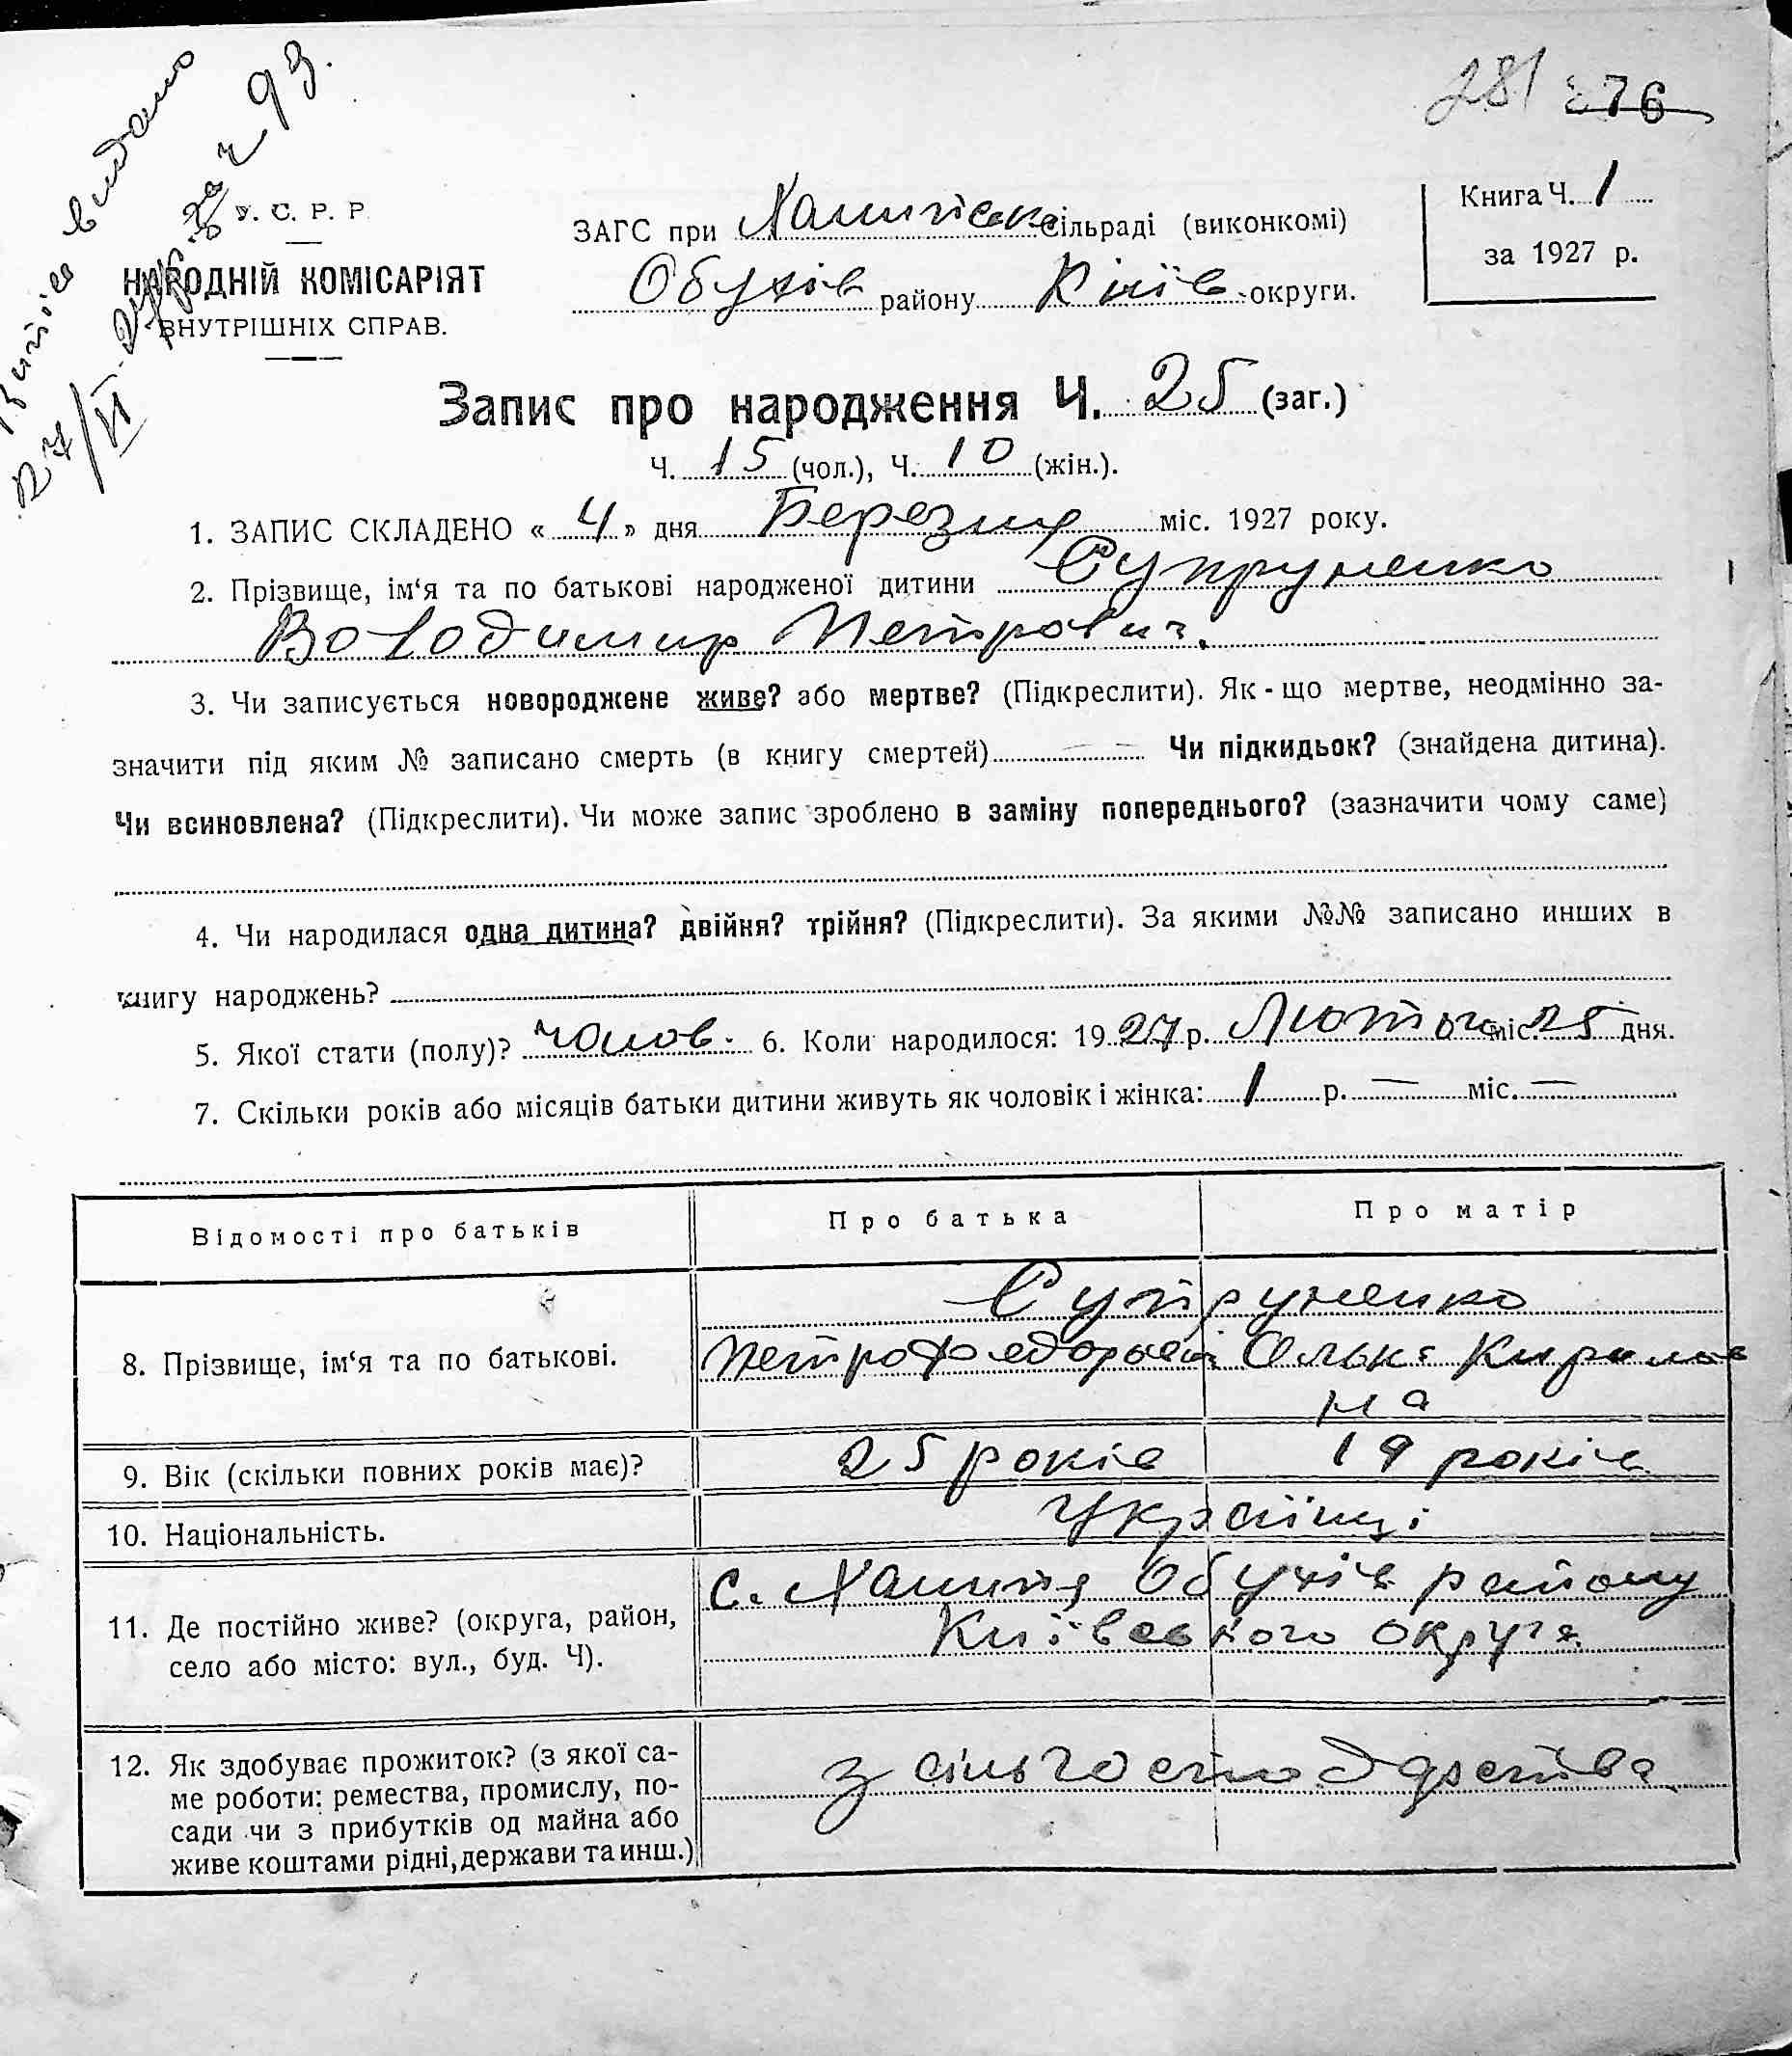 281 276
Витяг видано
27/VI
93.
У. С. Р. Р.
НАРОДНІЙ КОМІСАРІЯТ
ВНУТРІШНІХ СПРАВ.
ЗАГС при сільраді (виконкомі)
Обухів району Київ округи.
Книга Ч. 1
за 1927 р.
Запис про народження Ч. 25 (заг.)
Ч. 15 (чол.), Ч. 10 (жін.).
1. ЗАПИС СКЛАДЕНО « 4 » дня Березня міс. 1927 року.
2. Прізвище, ім‘я та по батькові народженої дитини Супруненко
Володимир Петрович.
3. Чи записується новороджене живе? або мертве? (Підкреслити). Як-що мертве, неодмінно за-
значити під яким № записано смерть (в книгу смертей) — Чи підкидьок? (знайдена дитина).
Чи всиновлена? (Підкреслити). Чи може запис зроблено в заміну попереднього? (зазначити чому саме)
4. Чи народилася одна дитина? двійня? трійня? (Підкреслити). За якими №№ записано инших в
книгу народжень?
5. Якої стати (полу)? чолов. 6. Коли народилося: 1927 р. Лютого міс. 25 дня.
7. Скільки років або місяців батьки дитини живуть як чоловік і жінка: 1 р. — міс. —
Відомості про батьків Про батька Про матір
Супруненко
8. Прізвище, ім‘я та по батькові. Петро Федорьев Олька Кирилов
на
9. Вік (скільки повних років має)? 25 років 19 років
10. Національність. Українці
с. Халипя Обухів району
11. Де постійно живе? (округа, район,
село або місто: вул., буд. Ч).
Київського округа
12. Як здобуває прожиток? (з якої са-
ме роботи: ремества, промислу, по-
сади чи з прибутків од майна або
живе коштами рідні, держави та инш.)
з сільгосподарства